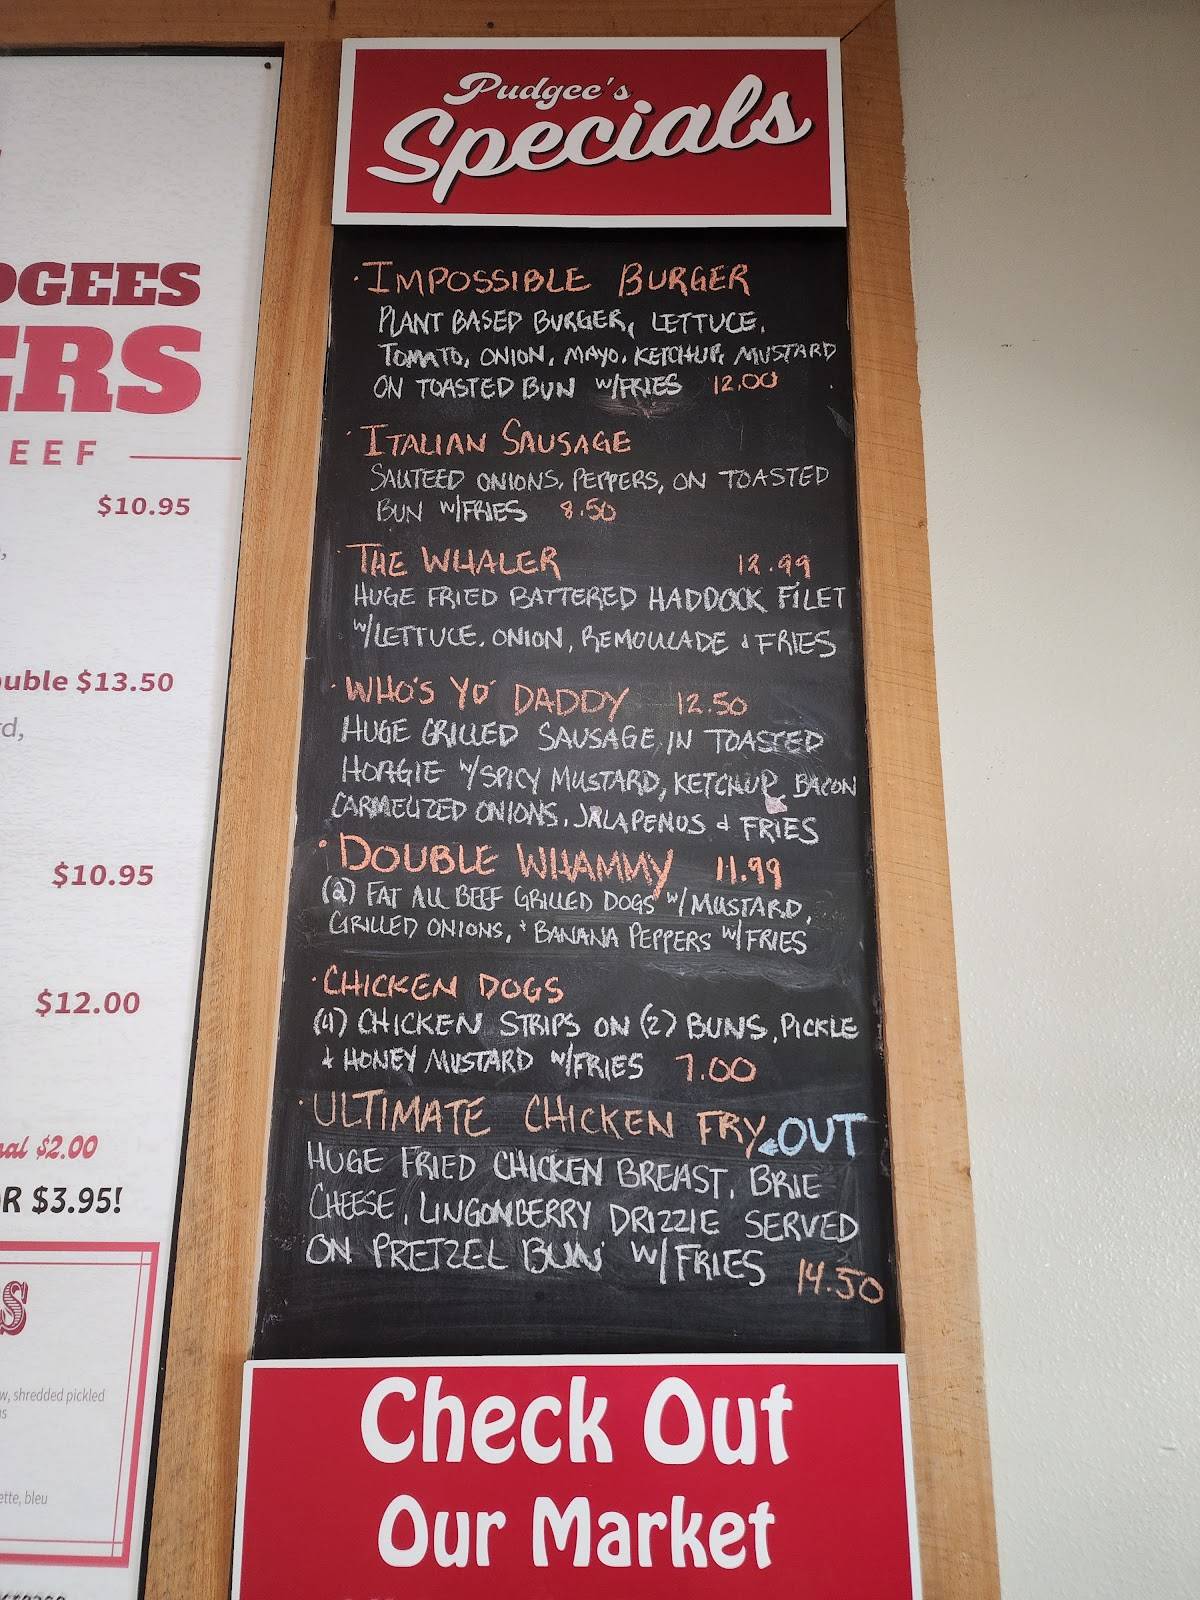 Pudgee's
Specials
· IMPOSSIBLE BURGER
PLANT BASED BURGER, LETTUCE,
TOMATO, ONION, MAYO, KETCHUP, MUSTARD
ON TOASTED BUN W/FRIES 12.00
· ITALIAN SAUSAGE
SAUTEED ONIONS, PEPPERS, ON TOASTED
BUN W/FRIES 8.50
· THE WHALER 12.99
HUGE FRIED BATTERED HADDOCK FILET
W/LETTUCE, ONION, REMOULADE & FRIES
· WHO'S YO' DADDY 12.50
HUGE GRILLED SAUSAGE IN TOASTED
HOAGIE W/SPICY MUSTARD, KETCHUP, BACON
CARMELIZED ONIONS, JALAPENOS & FRIES
· DOUBLE WHAMMY 11.99
(2) FAT ALL BEEF GRILLED DOGS W/MUSTARD,
GRILLED ONIONS, & BANANA PEPPERS W/FRIES
· CHICKEN DOGS
(4) CHICKEN STRIPS ON (2) BUNS, PICKLE
& HONEY MUSTARD W/FRIES 7.00
· ULTIMATE CHICKEN FRY OUT
HUGE FRIED CHICKEN BREAST, BRIE
CHEESE, LINGONBERRY DRIZZLE SERVED
ON PRETZEL BUN W/FRIES 14.50
Check Out
Our Market
DGEES
ERS
EEF
$10.95
uble $13.50
d,
$10.95
$12.00
nal $2.00
R $3.95!
S
w, shredded pickled
s
ette, bleu